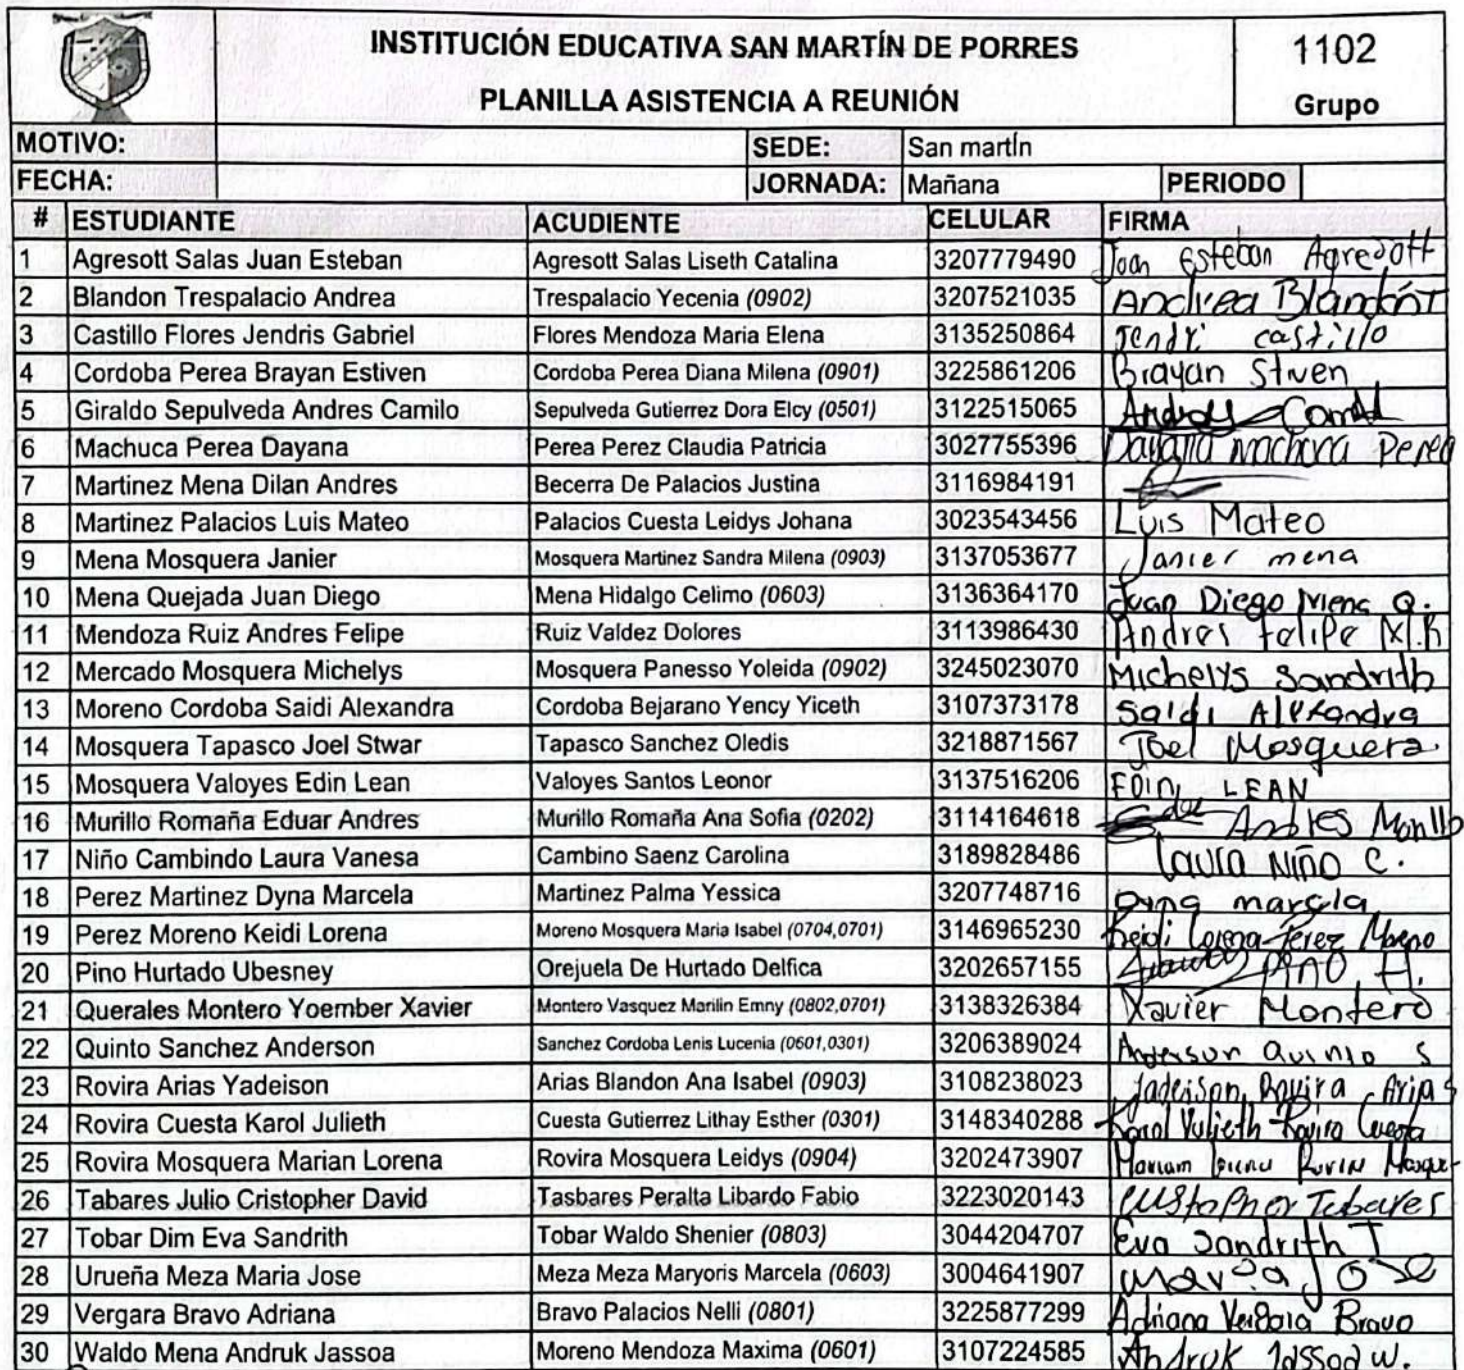 INSTITUCIÓN EDUCATIVA SAN MARTÍN DE PORRES 1102
PLANILLA ASISTENCIA A REUNIÓN Grupo
MOTIVO: SEDE: San martín
FECHA: JORNADA: Mañana PERIODO
# ESTUDIANTE ACUDIENTE CELULAR FIRMA
1 Agresott Salas Juan Esteban Agresott Salas Liseth Catalina 3207779490 Joan Esteban Agresott
2 Blandon Trespalacio Andrea Trespalacio Yecenia (0902) 3207521035 Andrea Blandón T
3 Castillo Flores Jendris Gabriel Flores Mendoza Maria Elena 3135250864 Jendri castillo
4 Cordoba Perea Brayan Estiven Cordoba Perea Diana Milena (0901) 3225861206 Brayan Stiven
5 Giraldo Sepulveda Andres Camilo Sepulveda Gutierrez Dora Elcy (0501) 3122515065
6 Machuca Perea Dayana Perea Perez Claudia Patricia 3027755396 Dayana Machuca Perea
7 Martinez Mena Dilan Andres Becerra De Palacios Justina 3116984191
8 Martinez Palacios Luis Mateo Palacios Cuesta Leidys Johana 3023543456 Luis Mateo
9 Mena Mosquera Janier Mosquera Martinez Sandra Milena (0903) 3137053677 Janier mena
10 Mena Quejada Juan Diego Mena Hidalgo Celimo (0603) 3136364170 Juan Diego Mena Q.
11 Mendoza Ruiz Andres Felipe Ruiz Valdez Dolores 3113986430 Andres Felipe M.R
12 Mercado Mosquera Michelys Mosquera Panesso Yoleida (0902) 3245023070 Michelys Sandrith
13 Moreno Cordoba Saidi Alexandra Cordoba Bejarano Yency Yiceth 3107373178 Saidi Alexandra
14 Mosquera Tapasco Joel Stwar Tapasco Sanchez Oledis 3218871567 Joel Mosquera.
15 Mosquera Valoyes Edin Lean Valoyes Santos Leonor 3137516206 EDIN LEAN
16 Murillo Romaña Eduar Andres Murillo Romaña Ana Sofia (0202) 3114164618 Andres Murillo
17 Niño Cambindo Laura Vanesa Cambino Saenz Carolina 3189828486 Laura Niño C.
18 Perez Martinez Dyna Marcela Martinez Palma Yessica 3207748716 Dyna marcela
19 Perez Moreno Keidi Lorena Moreno Mosquera Maria Isabel (0704,0701) 3146965230 Keidi Lorena Perez Moreno
20 Pino Hurtado Ubesney Orejuela De Hurtado Delfica 3202657155 PINO H.
21 Querales Montero Yoember Xavier Montero Vasquez Marilin Emny (0802,0701) 3138326384 Xavier Montero
22 Quinto Sanchez Anderson Sanchez Cordoba Lenis Lucenia (0601,0301) 3206389024 Anderson Quinto S
23 Rovira Arias Yadeison Arias Blandon Ana Isabel (0903) 3108238023 Jadeison Rovira Arias
24 Rovira Cuesta Karol Julieth Cuesta Gutierrez Lithay Esther (0301) 3148340288 Karol Yulieth Rovira Cuesta
25 Rovira Mosquera Marian Lorena Rovira Mosquera Leidys (0904) 3202473907 Mariam
26 Tabares Julio Cristopher David Tasbares Peralta Libardo Fabio 3223020143 Tabares
27 Tobar Dim Eva Sandrith Tobar Waldo Shenier (0803) 3044204707 Eva Sandrith T
28 Urueña Meza Maria Jose Meza Meza Maryoris Marcela (0603) 3004641907 María Jose
29 Vergara Bravo Adriana Bravo Palacios Nelli (0801) 3225877299 Adriana Vergara Bravo
30 Waldo Mena Andruk Jassoa Moreno Mendoza Maxima (0601) 3107224585 Andruk Jassoa W.